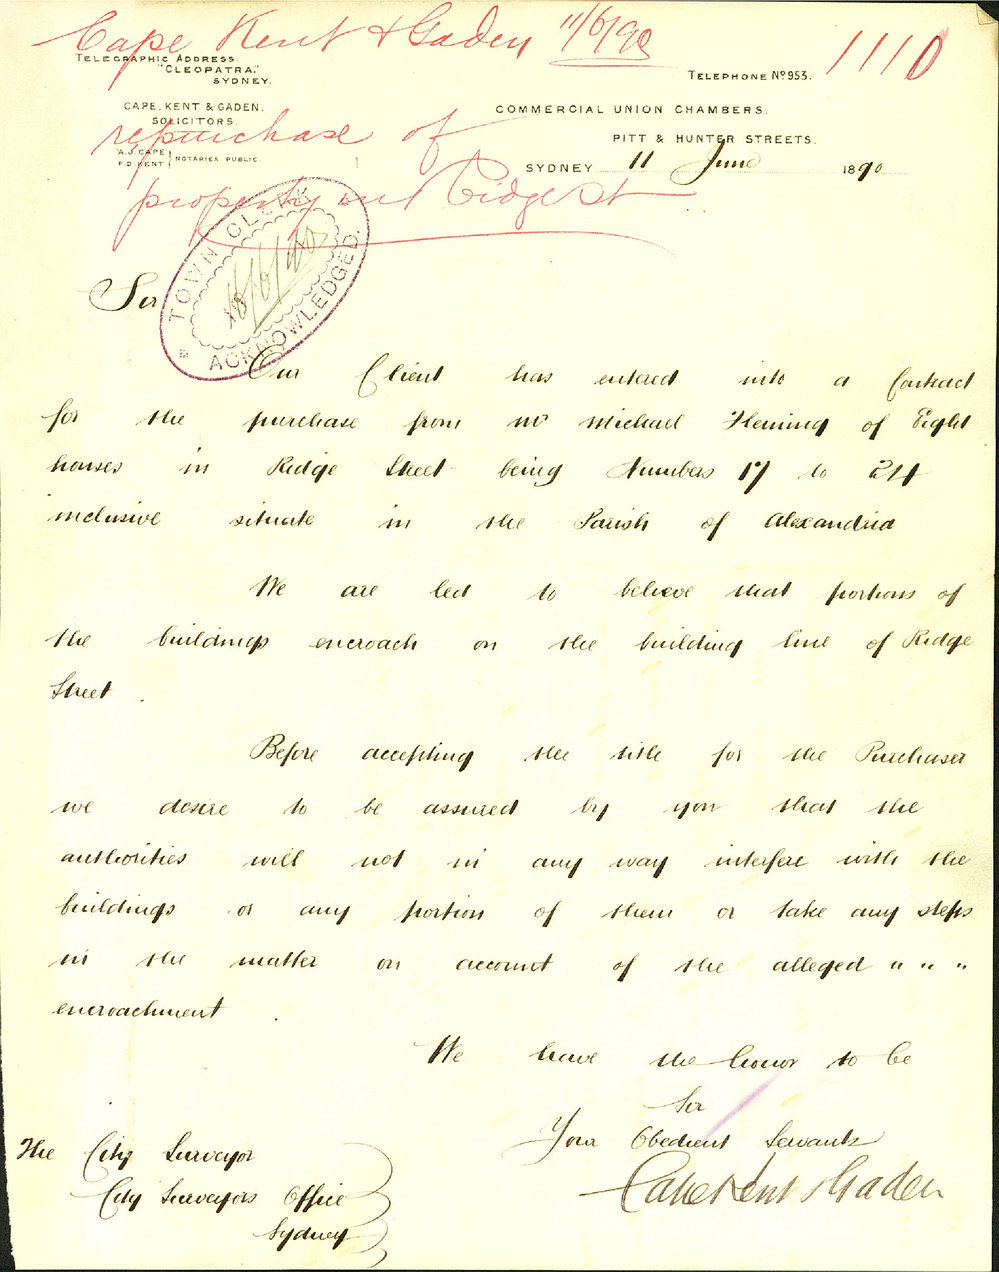 Cape Kent & Gaden 11/6/90
1110
TELEGRAPHIC ADDRESS.
"CLEOPATRA."
SYDNEY.
TELEPHONE No 953.
CAPE, KENT & GADEN.
SOLICITORS.
A.J. CAPE
F.D. KENT
NOTARIES PUBLIC.
COMMERCIAL UNION CHAMBERS.
PITT & HUNTER STREETS.
SYDNEY 11 June 1890
re purchase of
property in Ridge St
TOWN CLERK
ACKNOWLEDGED.
Sir
Our Client has entered into a Contract
for the purchase from Mr Michael Fleming of Eight
houses in Ridge Street being Numbers 17 to 24
inclusive situate in the Parish of Alexandria
We are led to believe that portions of
the buildings encroach on the building line of Ridge
Street.
Before accepting the title for the Purchaser
we desire to be assured by you that the
authorities will not in any way interfere with the
buildings or any portion of them or take any steps
in the matter on account of the alleged " " "
encroachment.
We have the honor to be
Sir
Your Obedient Servants
Cape Kent & Gaden
The City Surveyor
City Surveyors Office
Sydney